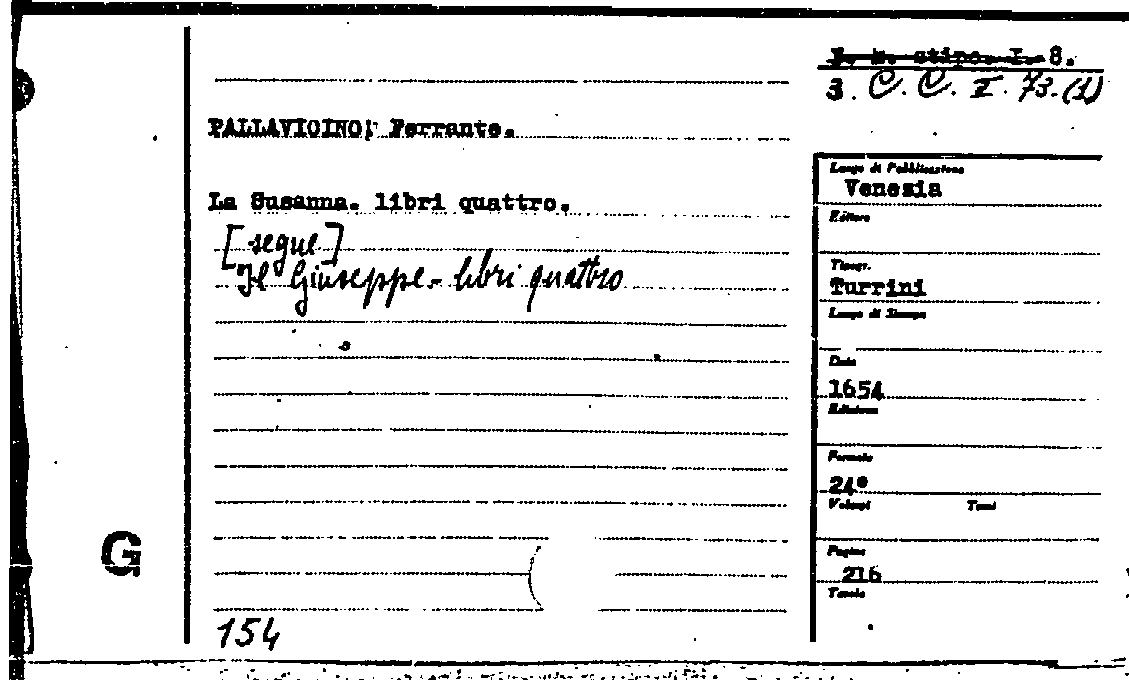 8.
3. C. C. I. 73.(1)
PALLAVICINO, Ferrante.
La Susanna. libri quattro.
[segue]
Il Giuseppe - libri quattro
Luogo di Pubblicazione
Venezia
Editore
Tipogr.
Turrini
Luogo di Stampa
Data
1654
Edizione
Formato
24°
Volumi Tomi
Pagine
216
Tavole
G
154